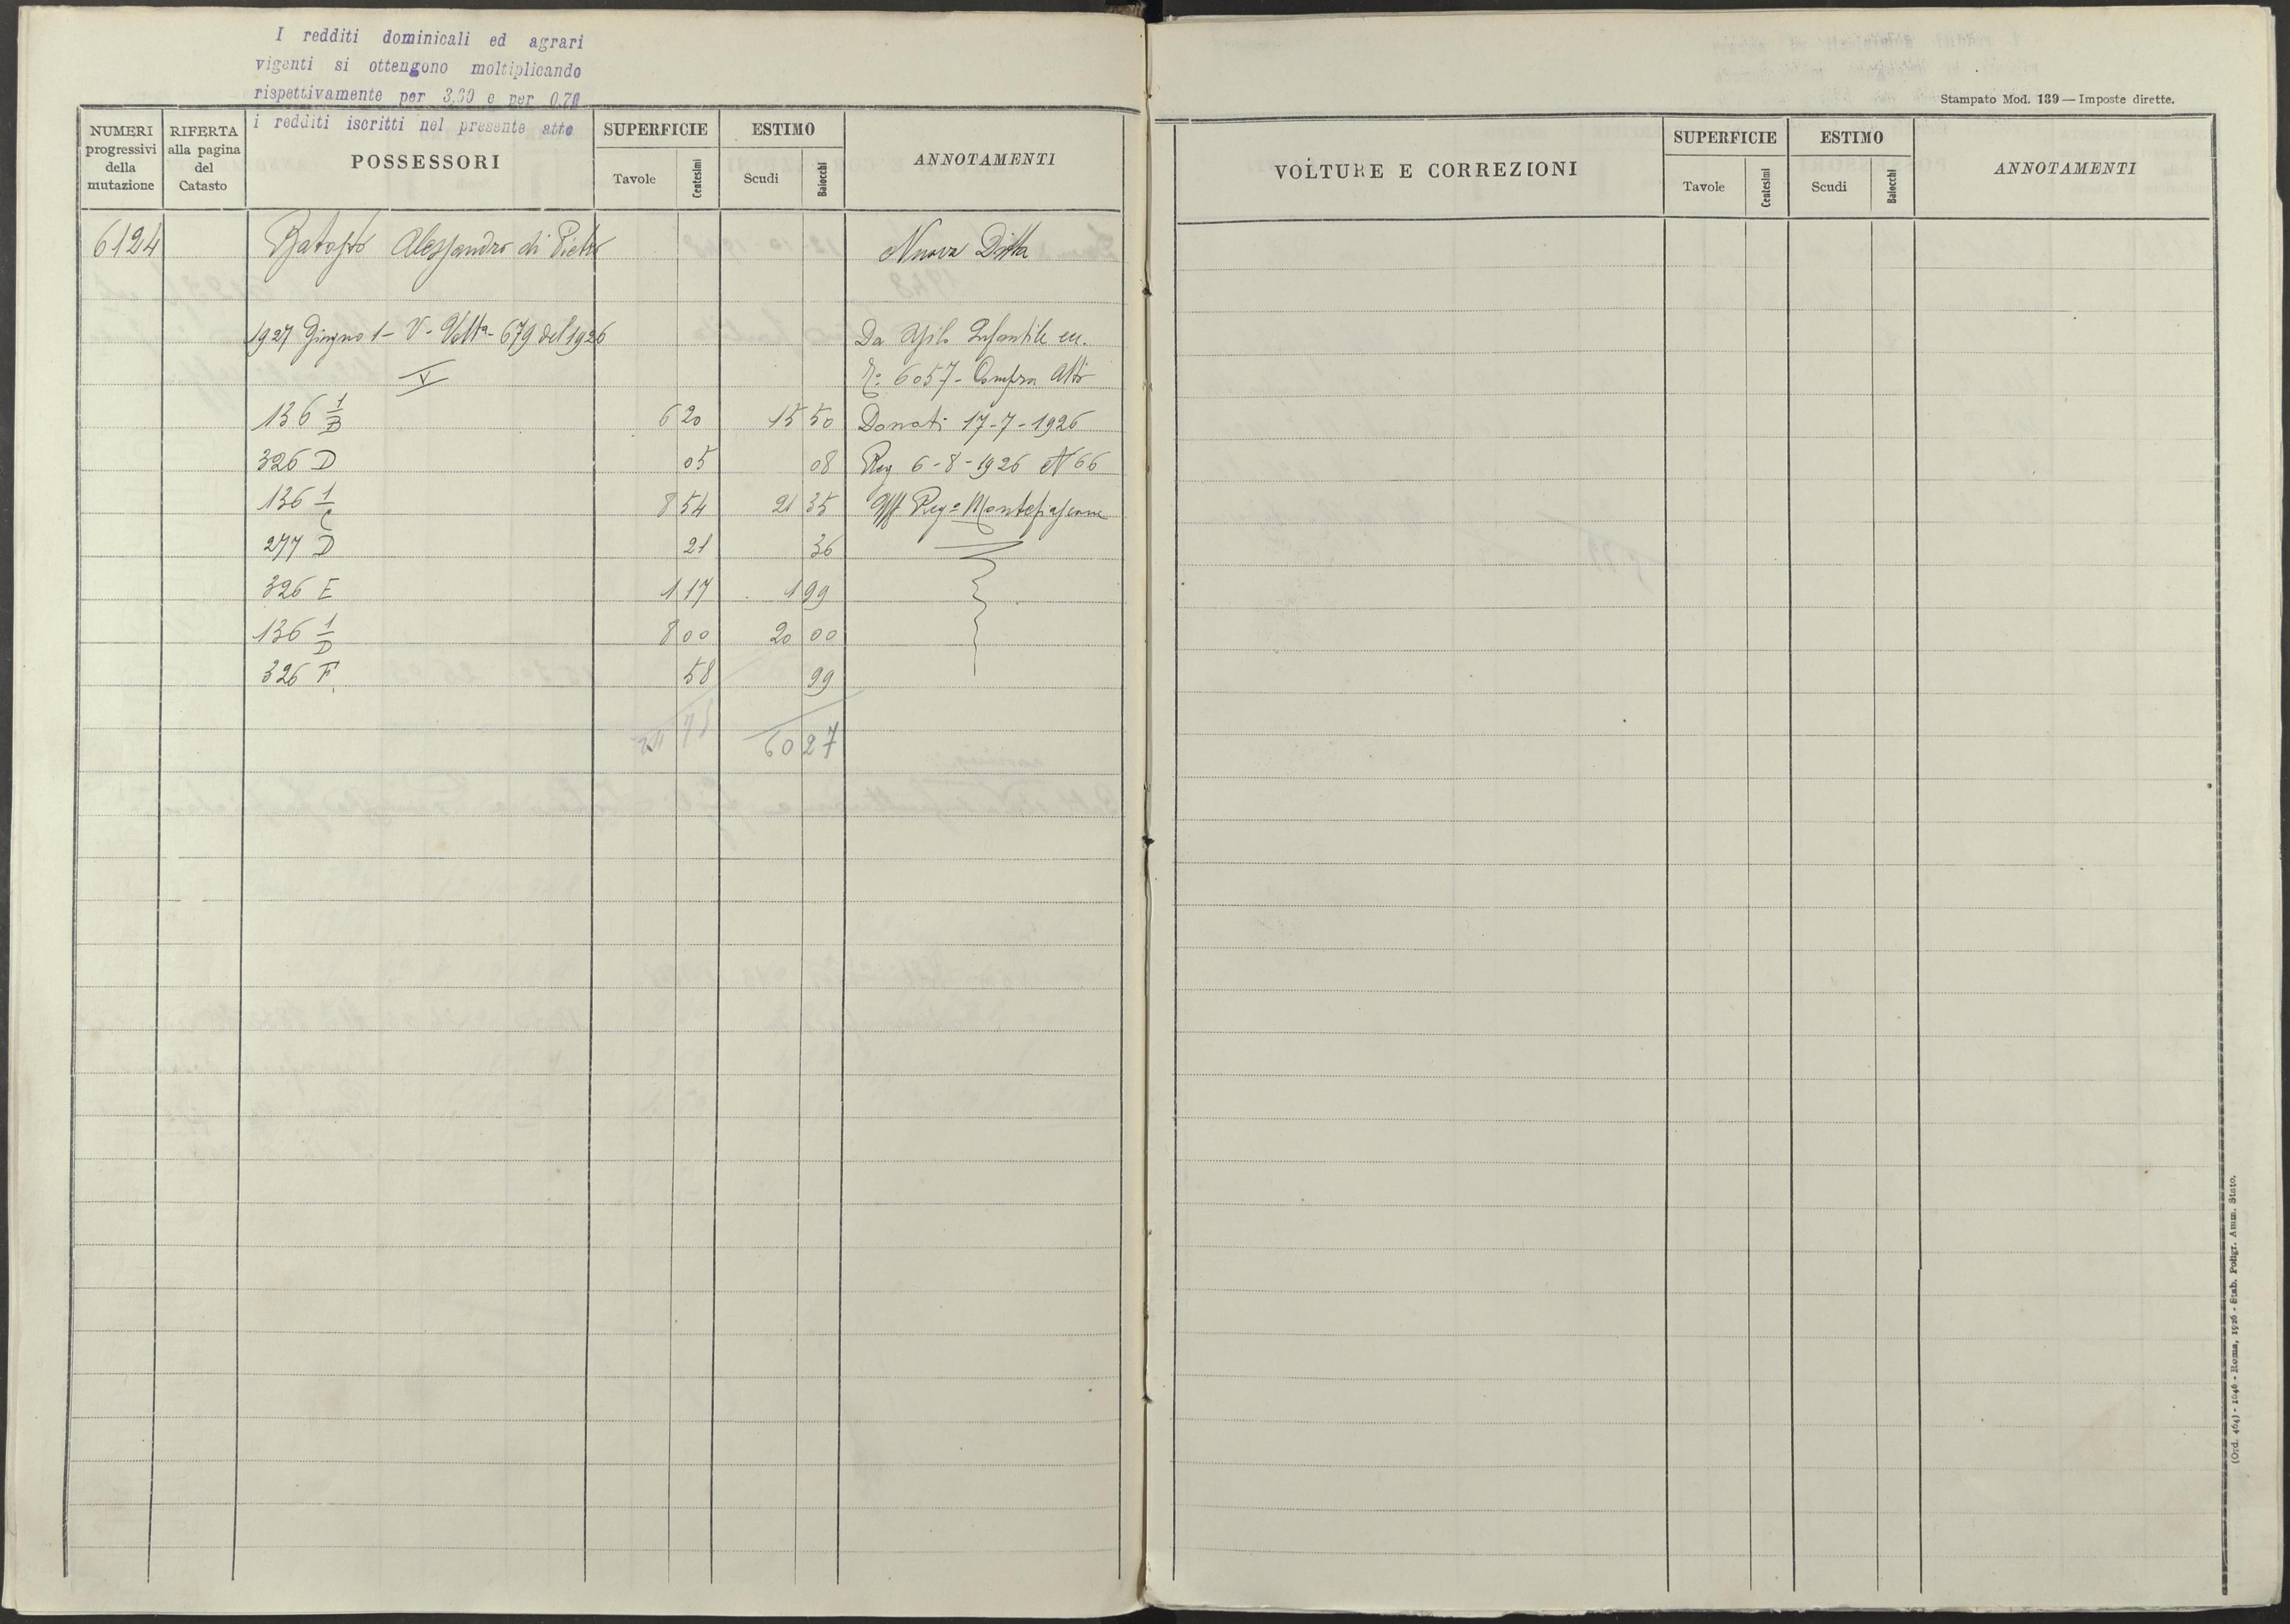 I redditi dominicali ed agrari
vigenti si ottengono moltiplicando
rispettivamente per 3.60 e per 0.70
i redditi iscritti nel presente atto
NUMERI progressivi della mutazione
RIFERTA alla pagina del Catasto
POSSESSORI
SUPERFICIE
Tavole Centesimi
ESTIMO
Scudi Baiocchi
ANNOTAMENTI
6124 Alessandro di Pietro Nuova Ditta
1927 Giugno 1 - V - Volta - 679 del 1926 Da Asilo Infantile
V 6057 - Compra Atto
136 1/B 6 20 15 50 Donati 17-7-1926
326 D 05 08 Reg 6-8-1926 N 66
136 1/C 8 54 21 35 Uff Reg Montefiascone
277 D 21 36
326 E 1 17 1 99
136 1/D 8 00 20 00
326 F 58 99
24 75 60 27
Stampato Mod. 139 — Imposte dirette.
VOLTURE E CORREZIONI
SUPERFICIE
Tavole Centesimi
ESTIMO
Scudi Baiocchi
ANNOTAMENTI
(Ord. 464) - 1046 - Roma, 1926 - Stab. Poligr. Amm. Stato.